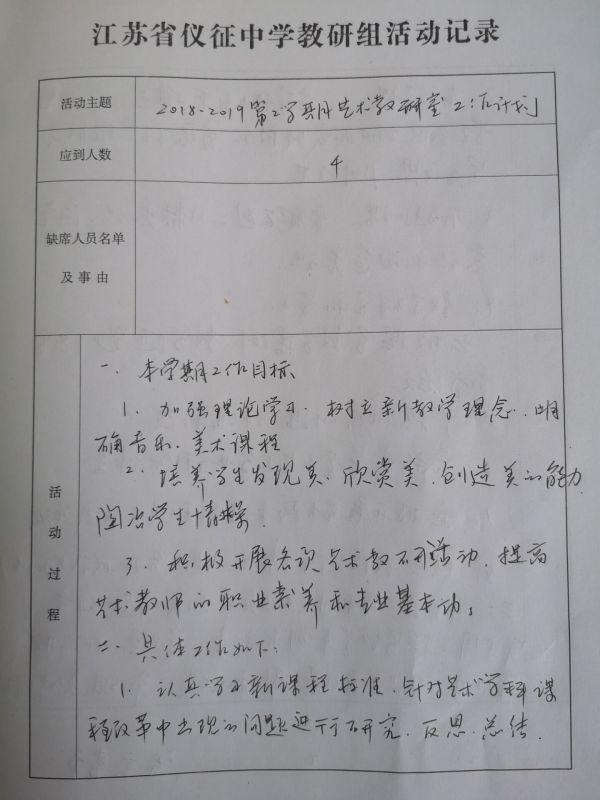 江苏省仪征中学教研组活动记录
活动主题 2018-2019第2学期艺术教研室工作计划
应到人数 4
缺席人员名单
及事由
活动过程
一、本学期工作目标
1、加强理论学习、树立新教学理念、明
确音乐、美术课程
2、培养学生发现美、欣赏美、创造美的能力
陶冶学生情操。
3、积极开展各项艺术教研活动、提高
艺术教师的职业素养和专业基本功。
二、具体工作如下:
1、认真学习新课程标准、针对艺术学科课
程改革中出现的问题进行研究、反思、总结.